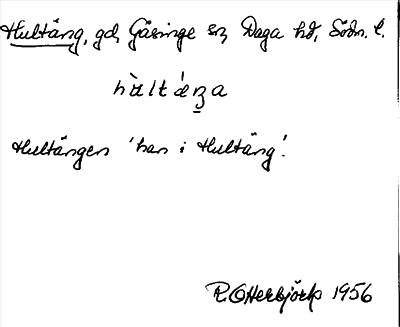 Hultäng, gd, Gåsinge sn, Daga hd, Södm. l.
hùltǽŋa
Hultängen 'han i Hultäng'.
R. Otterbjörk 1956